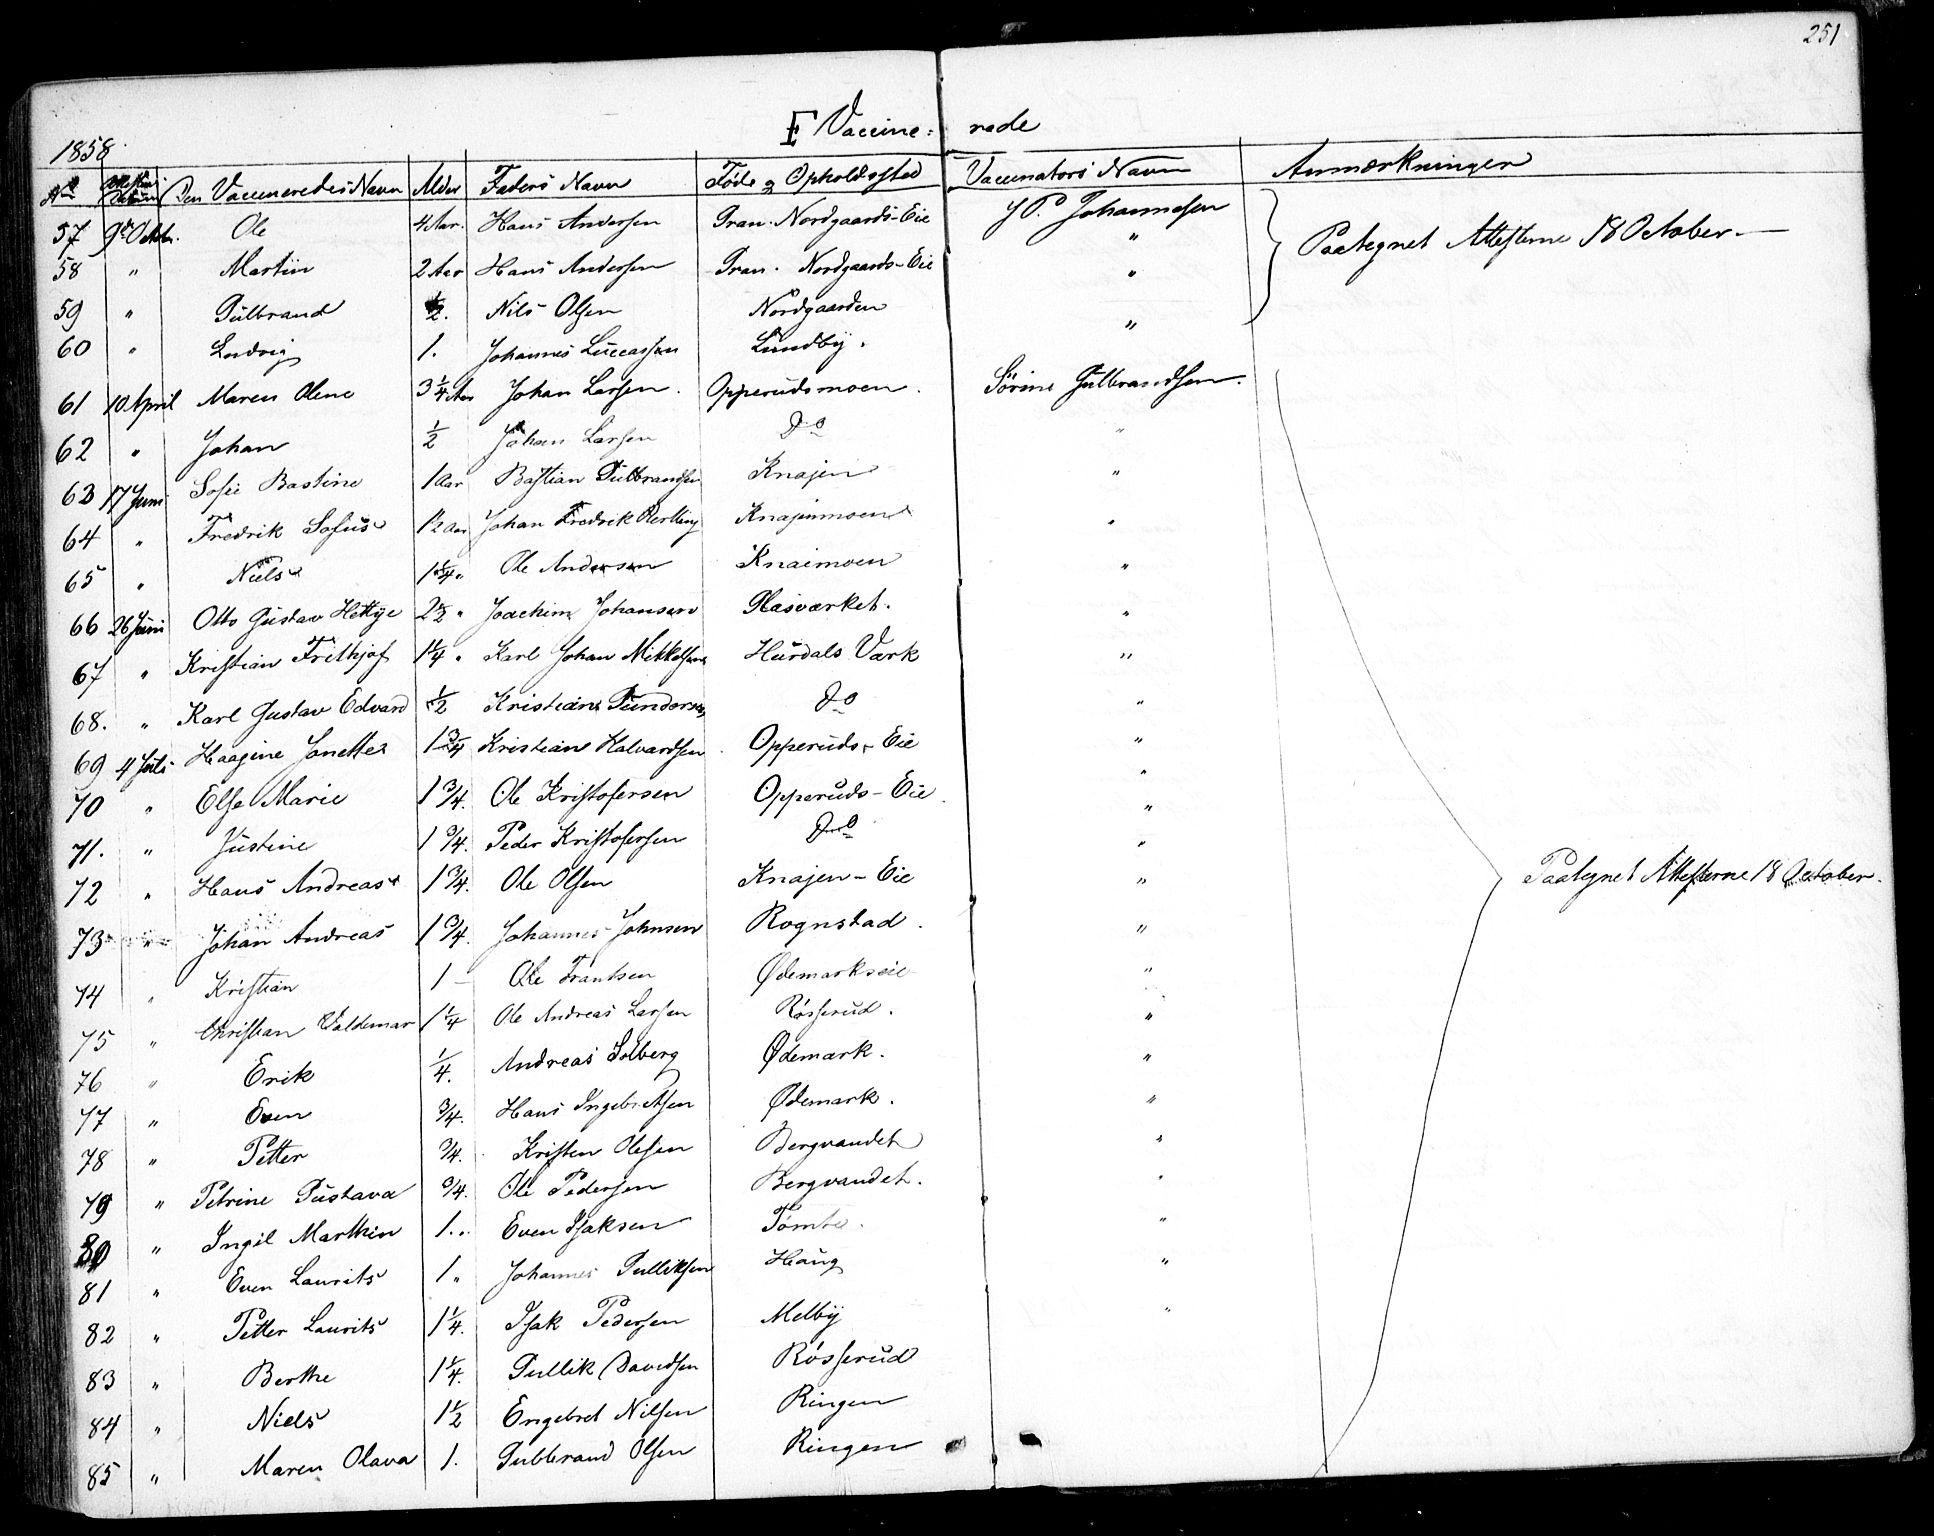 251
F Vaccine= rade
1858
No Attestens Datum Den Vaccineredes Navn Alder Faders Navn Føde og Opholdssted Vaccinators Navn Anmærkninger
57 9de Octbr. Ole 4 Aar. Hans Andersen Gran. Nordgaards-Eie J P. Johannesen
58 " Martin 2 Aar Hans Andersen Gran. Nordgaards-Eie " Paategnet Attesterne 18 October.
59 " Gulbrand ½. Nils Olsen Nordgaarden "
60 " Ludvig 1. Johannes Luccassen Lundby. "
61 10 April Maren Olene 3¼ Aar Johan Larsen. Opperudsmoen. Sörine Gulbrandsen.
62 " Johan ½ Johan Larsen Do "
63 17 Juni Sofie Bastine 1 Aar Bastian Gulbrandsen Knajen "
64 " Fredrik Sofus 1½ Aar Johan Fredrik Knajenmoen "
65 " Niels 1¼ " Ole Andersen Knaimoen "
66 26 Juni Otto Gustav 2½ " Joachim Johansen Glasværket. "
67 " Kristian Frithjof 1¼ " Karl Johan Mikkelsen Hurdals Værk "
68. " Karl Gustav Edvard ½ Kristian Gundersen Do "
69 4 Juli Haagine Jonette 1¾ Kristian Halvardsen Opperuds-Eie "
70 " Else Marie 1¾. Ole Kristofersen Opperuds-Eie. "
71. " Justine 1¾. Peder Kristofersen Do "
72 " Hans Andreas 1¾. Ole Olsen Knajen-Eie " Paategnet Attesterne 18 October.
73 " Johan Andreas 1¾. Johannes Johnsen Rognstad. "
74 " Kristian 1 - Ole Frantsen Ødemarkseie "
75 " Christian Valdemar 1¼ Ole Andreas Larsen Røsserud. "
76 " Erik ¼. Andreas Solberg Ødemark. "
77 " Even ¾. Hans Ingebretsen Ødemark. "
78 " Petter ¾. Kristen Olesen Bergvandet "
79 " Petrine Gustava ¾. Ole Pedersen Bergvandet. "
80 " Ingil Marthin 1. " Even Isaksen Tømte. "
81 " Even Laurits 1 " Johannes Gulliksen Haug "
82 " Petter Laurits 1¼. Isak Pedersen Melby "
83 " Berthe 1¼. Gullik Davidsen Røsserud
84 " Niels 1½ Engebret Nilsen Ringen
85 " Maren Olava 1. Gulbrand Olsen Ringen